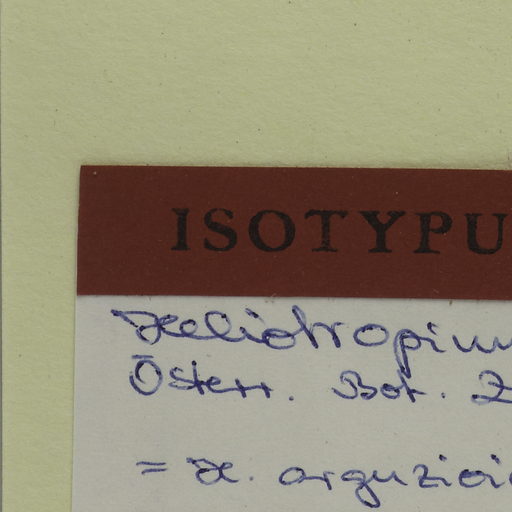 ISOTYPU
Heliotropium
Österr. Bot. Z
= H. arguzioi